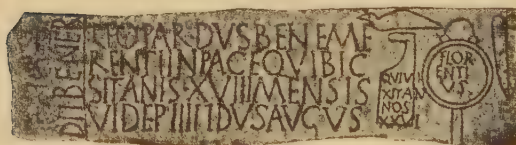 LEOPARDVS BENEME
RENTI IN PACE QVI BIC
SIT ANIS·XVIII MENSIS
VI DEP IIII IDVS AVGVS
QVIV
XSITAN
NOS
XXVI
FLOR
ENTI
VS